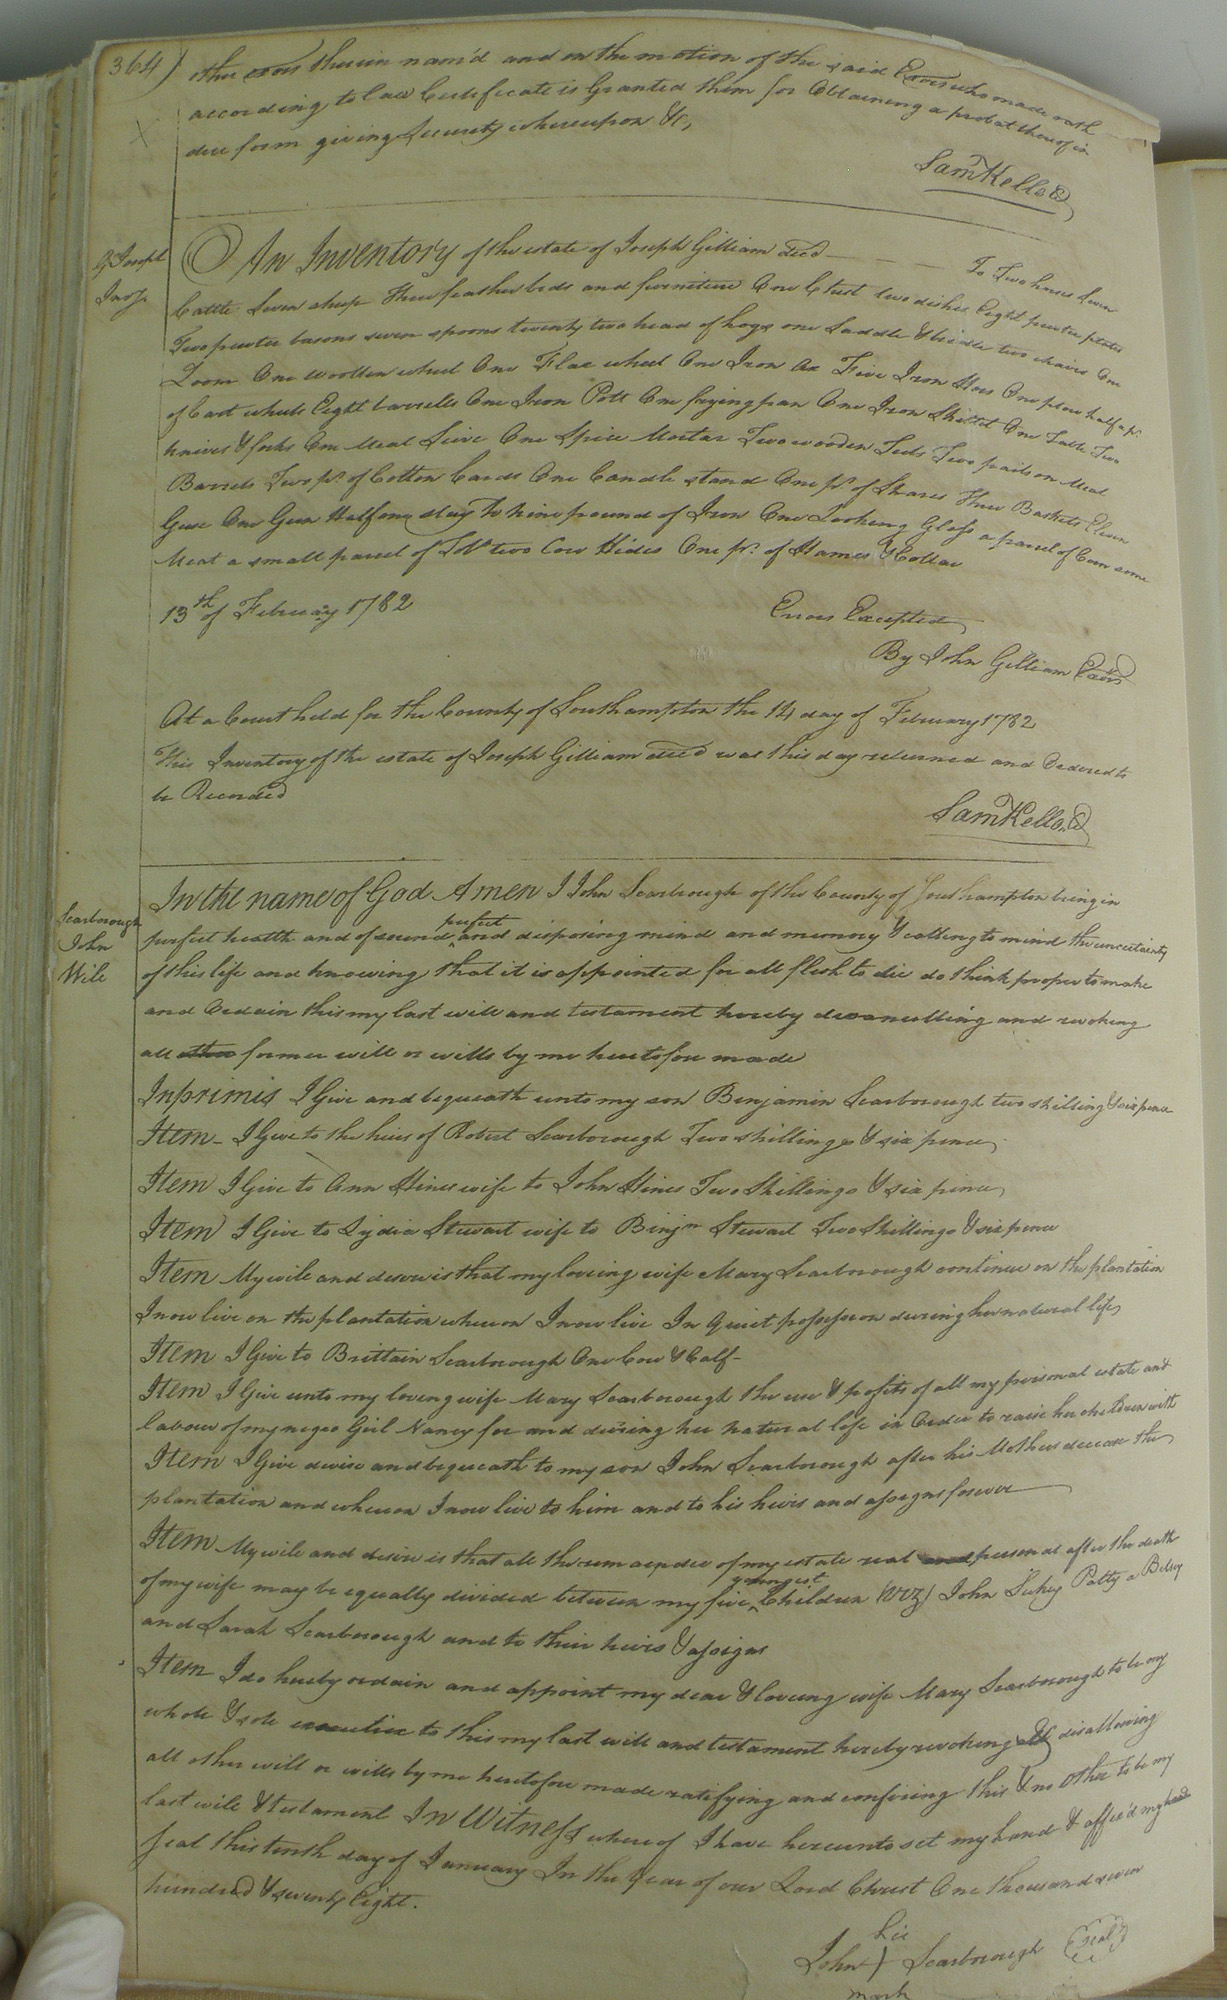 364)
other Exors therein nam'd and on the motion of the said Exors who made oath
according to law Certificate is Granted them for Obtaining a probat thereof in
due form giving Security whereupon &c,
Sam Kello Cl
G. Joseph
Invy.
An Inventory of the estate of Joseph Gilliam decd To Two horses Seven
Cattle Seven sheep Three feather beds and furniture One Chest two dishes Eight pewter plates
Two pewter basons seven spoons twenty two head of hogs one Saddle & bridle two chairs One
Loom One woollen wheel One Flax wheel One Iron Ax Five Iron Hoes One plow half a pr.
of Cart wheels Eight barrells One Iron Pott One frying pan One Iron Skillet One Table Two
knives & forks One Meal Sive One Spice Mortar Two wooden Two pails on Meal
Barrels Two pr. of Cotton Cards One Candle stand One pr. of Shares Three Baskets Eleven
Geese One Gun Half one pound of Iron One Looking Glass a parcel of Corn some
Meat a small parcel of two Cow Hides One pr. of Hames & Collar
13th of February 1782
Errors Excepted
By John Gilliam Exor
At a Court held for the County of Southampton the 14 day of February 1782
This Inventory of the estate of Joseph Gilliam decd was this day returned and Ordered to
be Recorded
Sam Kello Cl
Scarborough
John
Will
In the name of God Amen I John Scarbrough of the County of Southampton being in
perfect health and of sound perfect and disposing mind and memory & calling to mind the uncertainty
of this life and knowing that it is appointed for all flesh to die do think proper to make
and Ordain this my last will and testament hereby and revoking
all other former will or wills by me heretofore made
Inprimis I Give and bequeath unto my son Benjamin Scarborough two shilling & six pence
Item I Give to the heirs of Robert Scarborough Two shillings & six pence
Item I Give to Ann Hines wife to John Hines Two Shillings & six pence
Item I Give to Lydia Stewart wife to Binjn Stewart Two Shillings & six pence
Item My will and desire is that my loving wife Mary Scarborough continue on the plantation
I now live on the plantation whereon I now live In quiet possession during her natural life
Item I Give to Brittain Scarborough One Cow & Calf-
Item I Give unto my loving wife Mary Scarborough the use & profits of all my personal estate and
labour of my negro Girl Nancy for and during her natural life in Order to raise her children with
Item I Give devise and bequeath to my son John Scarborough after his Mothers decease the
plantation and whereon I now live to him and to his heirs and assigns forever
Item My will and desire is that all the remainder of my estate real and personal after the death
of my wife may be equally divided between my five youngest Children (viz) John Sukey Patty a Betsy
and Sarah Scarborough and to their heirs & assigns
Item I do hereby ordain and appoint my dear & loveing wife Mary Scarborough to be my
whole & sole executrix to this my last will and testament hereby revoking & disallowing
all other will or wills by me heretofore made ratifying and confiring this & no other to be my
last will & testament In Witness whereof I have hereunto set my hand & affix'd my
Seal this tenth day of January In the Year of our Lord Christ One thousand seven
hundred & seventy Eight.
his
John ) Scarborough (Seal)
mark